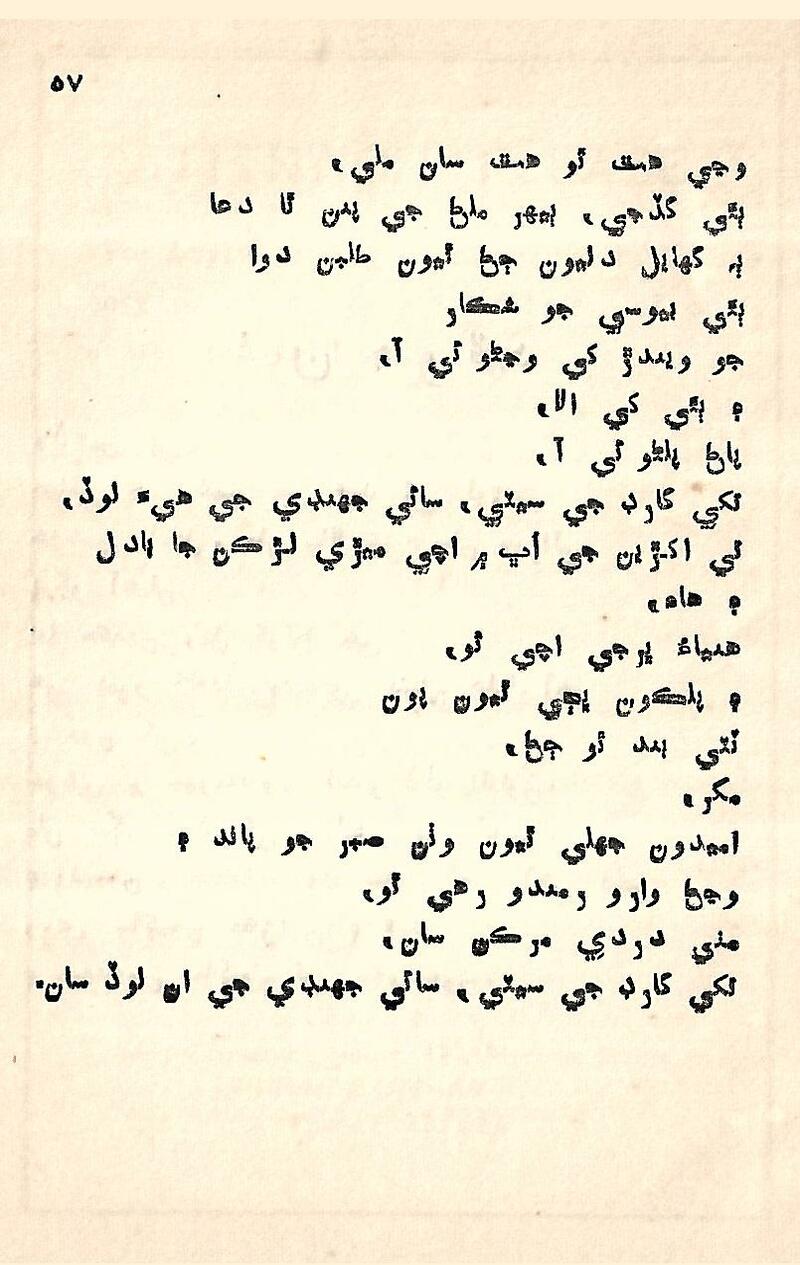 ٥٧
وڃي هٿ ٿو هٿ سان ملي،
ٻئي گڏجي، ٻيهر ملڻ جي پنن ٿا دعا
ٻہ گهايل دليون ڄڻ ٿيون طلبن دوا
ٻئي بيوسي جو شڪار
جو ويندڙ کي وڃڻو ئي آ،
۽ ٻئي کي الا،
پاڻ پلڻو ئي آ،
تکي گارڊ جي سيٽي، سائي جهنڊي جي هيءَ لوڏ،
ٿي اکڙين جي اُڀ ۾ اچي ميڙي لڙڪن جا بادل
۽ هاه،
هنياءُ ڀرجي اچي ٿو،
۽ پلڪون ڀڄي ٿيون پون
نٽي بند ٿو ڄڻ،
مگر،
اميدون جهلي ٿيون وٺن صبر جو پاند ۽
وڃڻ وارو رمندو رهي ٿو،
مٺي دردي مرڪن سان،
تکي گارڊ جي سيٽي، سائي جهنڊي جي ان لوڏ سان.